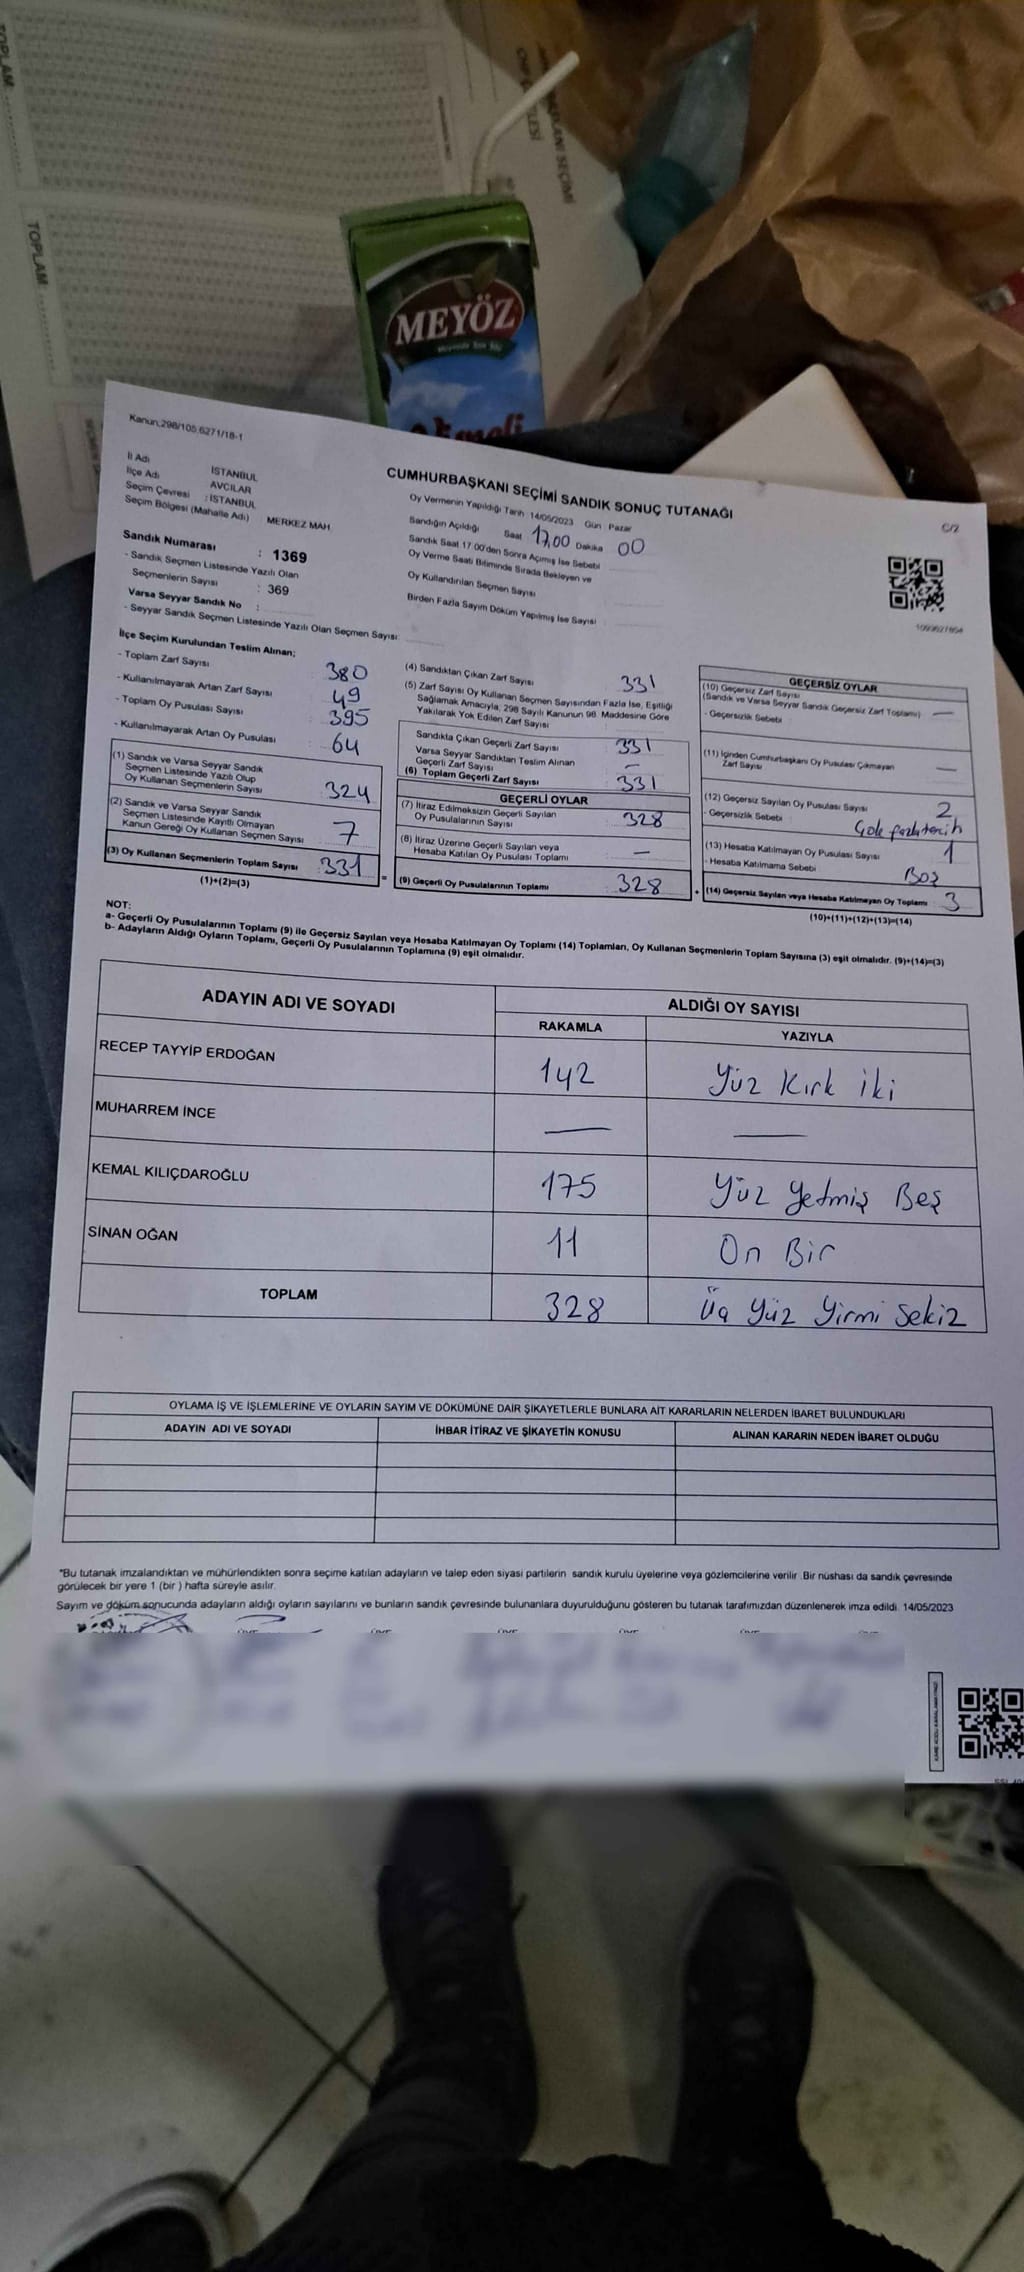 TOPLAM
TOPLAM
MEYÖZ
Kanun;298/105,6271/18-1
CUMHURBAŞKANI SEÇİMİ SANDIK SONUÇ TUTANAĞI
C/2
İl Adı İSTANBUL
İlçe Adı AVCILAR
Seçim Çevresi : İSTANBUL
Seçim Bölgesi (Mahalle Adı) MERKEZ MAH.
Sandık Numarası : 1369
- Sandık Seçmen Listesinde Yazılı Olan
Seçmenlerin Sayısı : 369
Varsa Seyyar Sandık No :
- Seyyar Sandık Seçmen Listesinde Yazılı Olan Seçmen Sayısı:
Oy Vermenin Yapıldığı Tarih 14/05/2023 Gün Pazar
Sandığın Açıldığı Saat 17,00 Dakika 00
Sandık Saat 17:00'den Sonra Açımış İse Sebebi
Oy Verme Saati Bitiminde Sırada Bekleyen ve
Oy Kullandırılan Seçmen Sayısı
Birden Fazla Sayım Döküm Yapılmış İse Sayısı :
İlçe Seçim Kurulundan Teslim Alınan;
- Toplam Zarf Sayısı 380
- Kullanılmayarak Artan Zarf Sayısı 49
- Toplam Oy Pusulası Sayısı 395
- Kullanılmayarak Artan Oy Pusulası 64
(1) Sandık ve Varsa Seyyar Sandık
Seçmen Listesinde Yazılı Olup
Oy Kullanan Seçmenlerin Sayısı 324
(2) Sandık ve Varsa Seyyar Sandık
Seçmen Listesinde Kayıtlı Olmayan
Kanun Gereği Oy Kullanan Seçmen Sayısı 7
(3) Oy Kullanan Seçmenlerin Toplam Sayısı 331
(1)+(2)=(3)
(4) Sandıktan Çıkan Zarf Sayısı 331
(5) Zarf Sayısı Oy Kullanan Seçmen Sayısından Fazla İse, Eşitliği
Sağlamak Amacıyla, 298 Sayılı Kanunun 98. Maddesine Göre
Yakılarak Yok Edilen Zarf Sayısı :
Sandıkta Çıkan Geçerli Zarf Sayısı 331
Varsa Seyyar Sandıktan Teslim Alınan
Geçerli Zarf Sayısı —
(6) Toplam Geçerli Zarf Sayısı 331
GEÇERLİ OYLAR
(7) İtiraz Edilmeksizin Geçerli Sayılan
Oy Pusulalarının Sayısı 328
(8) İtiraz Üzerine Geçerli Sayılan veya
Hesaba Katılan Oy Pusulası Toplamı —
= (9) Geçerli Oy Pusulalarının Toplamı 328 +
GEÇERSİZ OYLAR
(10) Geçersiz Zarf Sayısı
(Sandık ve Varsa Seyyar Sandık Geçersiz Zarf Toplamı) —
- Geçersizlik Sebebi
(11) İçinden Cumhurbaşkanı Oy Pusulası Çıkmayan
Zarf Sayısı —
(12) Geçersiz Sayılan Oy Pusulası Sayısı 2
- Geçersizlik Sebebi : Çok fazla tercih
(13) Hesaba Katılmayan Oy Pusulası Sayısı 1
- Hesaba Katılmama Sebebi Boş
(14) Geçersiz Sayılan veya Hesaba Katılmayan Oy Toplamı 3
(10)+(11)+(12)+(13)=(14)
NOT:
a- Geçerli Oy Pusulalarının Toplamı (9) ile Geçersiz Sayılan veya Hesaba Katılmayan Oy Toplamı (14) Toplamları, Oy Kullanan Seçmenlerin Toplam Sayısına (3) eşit olmalıdır. (9)+(14)=(3)
b- Adayların Aldığı Oyların Toplamı, Geçerli Oy Pusulalarının Toplamına (9) eşit olmalıdır.
ADAYIN ADI VE SOYADI ALDIĞI OY SAYISI
RAKAMLA YAZIYLA
RECEP TAYYİP ERDOĞAN 142 Yüz Kırk iki
MUHARREM İNCE — —
KEMAL KILIÇDAROĞLU 175 Yüz Yetmiş Beş
SİNAN OĞAN 11 On Bir
TOPLAM 328 Üç Yüz Yirmi Sekiz
OYLAMA İŞ VE İŞLEMLERİNE VE OYLARIN SAYIM VE DÖKÜMÜNE DAİR ŞİKAYETLERLE BUNLARA AİT KARARLARIN NELERDEN İBARET BULUNDUKLARI
ADAYIN ADI VE SOYADI İHBAR İTİRAZ VE ŞİKAYETİN KONUSU ALINAN KARARIN NEDEN İBARET OLDUĞU
*Bu tutanak imzalandıktan ve mühürlendikten sonra seçime katılan adayların ve talep eden siyasi partilerin sandık kurulu üyelerine veya gözlemcilerine verilir .Bir nüshası da sandık çevresinde
görülecek bir yere 1 (bir ) hafta süreyle asılır.
Sayım ve döküm sonucunda adayların aldığı oyların sayılarını ve bunların sandık çevresinde bulunanlara duyurulduğunu gösteren bu tutanak tarafımızdan düzenlenerek imza edildi. 14/05/2023